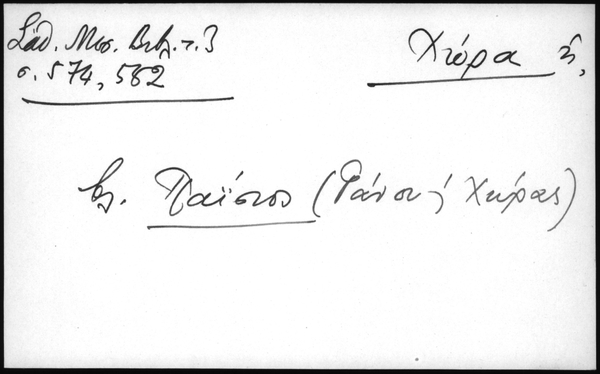 Σάθ. Μεσ. Βιβ. τ. 3
σ. 574, 582
Χώρα ἡ,
βλ. Παΐσιος (Γάνου ἡ Χώρας)